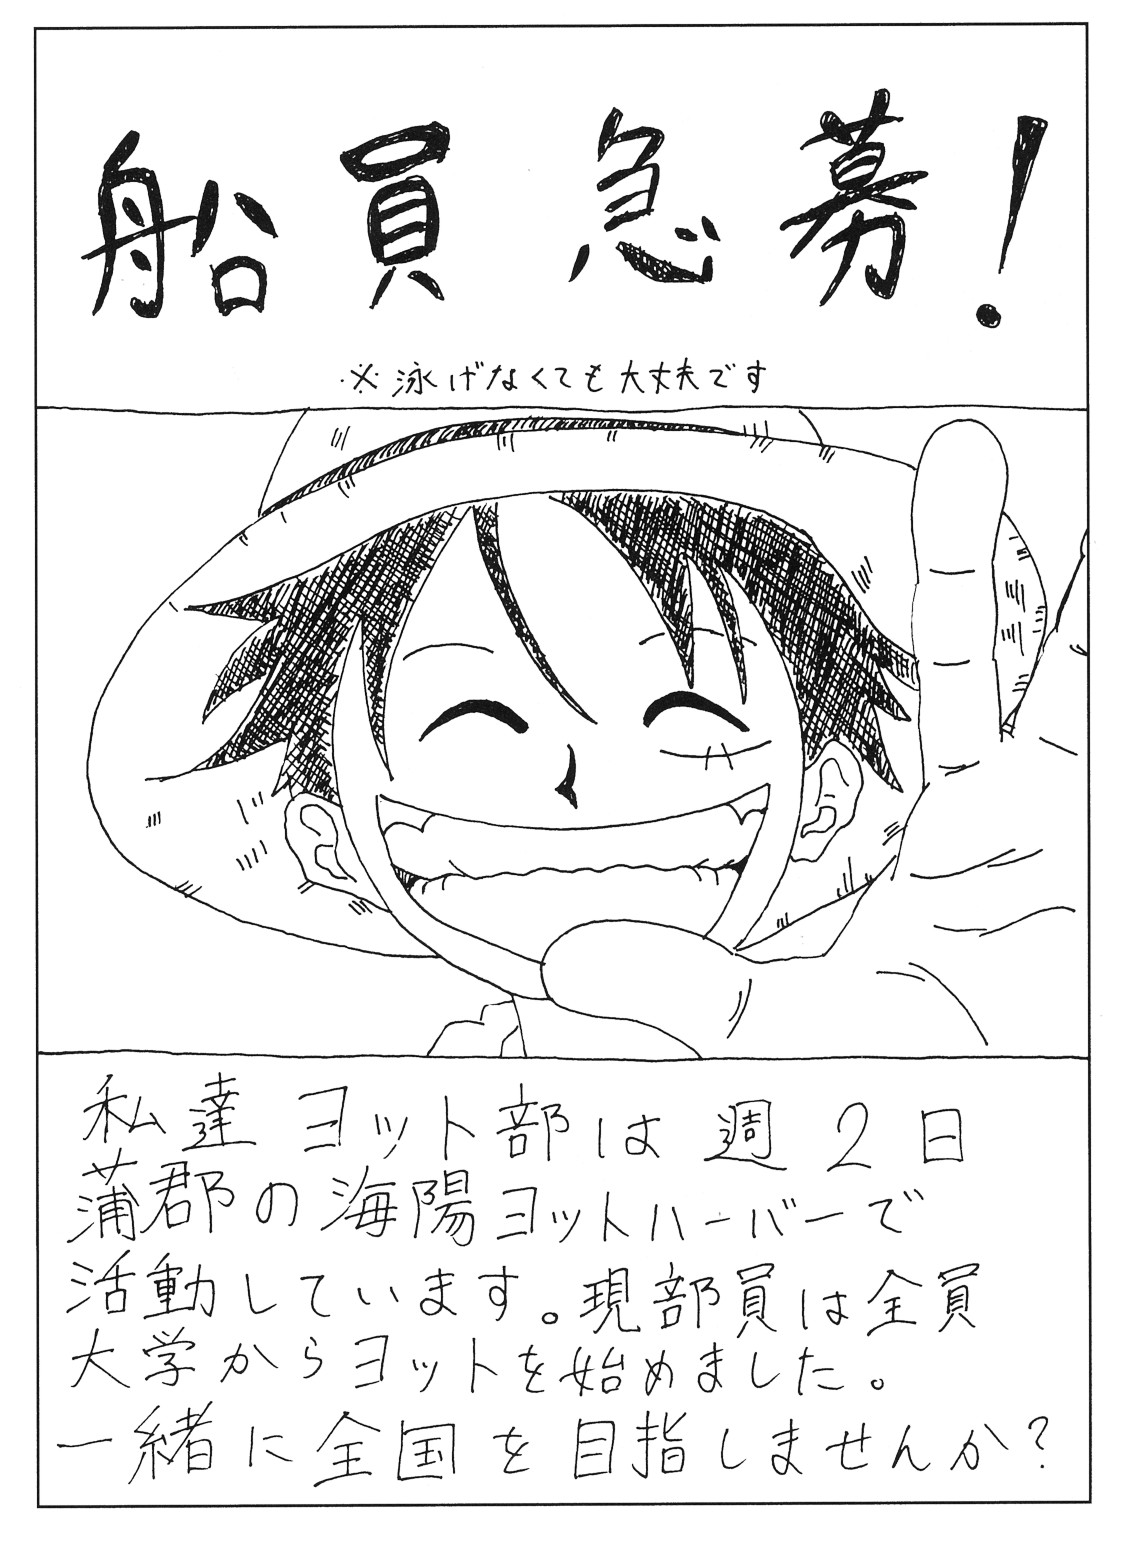 船員急募!
※泳げなくても大丈夫です
私達ヨット部は週2日
蒲郡の海陽ヨットハーバーで
活動しています。現部員は全員
大学からヨットを始めました。
一緒に全国を目指しませんか?